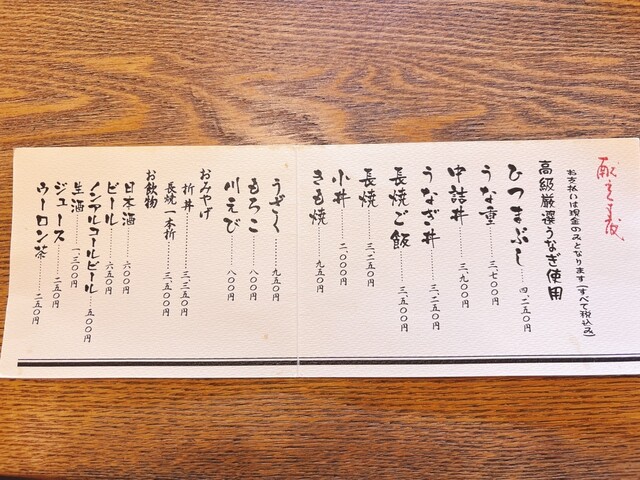 献立表
お支払いは現金のみとなります(すべて税込み)
高級厳選うなぎ使用
ひつまぶし………四、二五〇円
うな重………三、七〇〇円
中詰丼………三、九〇〇円
うなぎ丼………三、二五〇円
長焼ご飯………三、五〇〇円
長焼………三、二五〇円
小丼………二、〇〇〇円
きも焼………九五〇円
うざく………九五〇円
もろこ………八〇〇円
川えび………八〇〇円
おみやげ
折丼………三、三五〇円
長焼一本折………三、五〇〇円
お飲物
日本酒………六〇〇円
ビール………六五〇円
ノンアルコールビール………五〇〇円
生酒………一、三〇〇円
ジュース………二五〇円
ウーロン茶………二五〇円